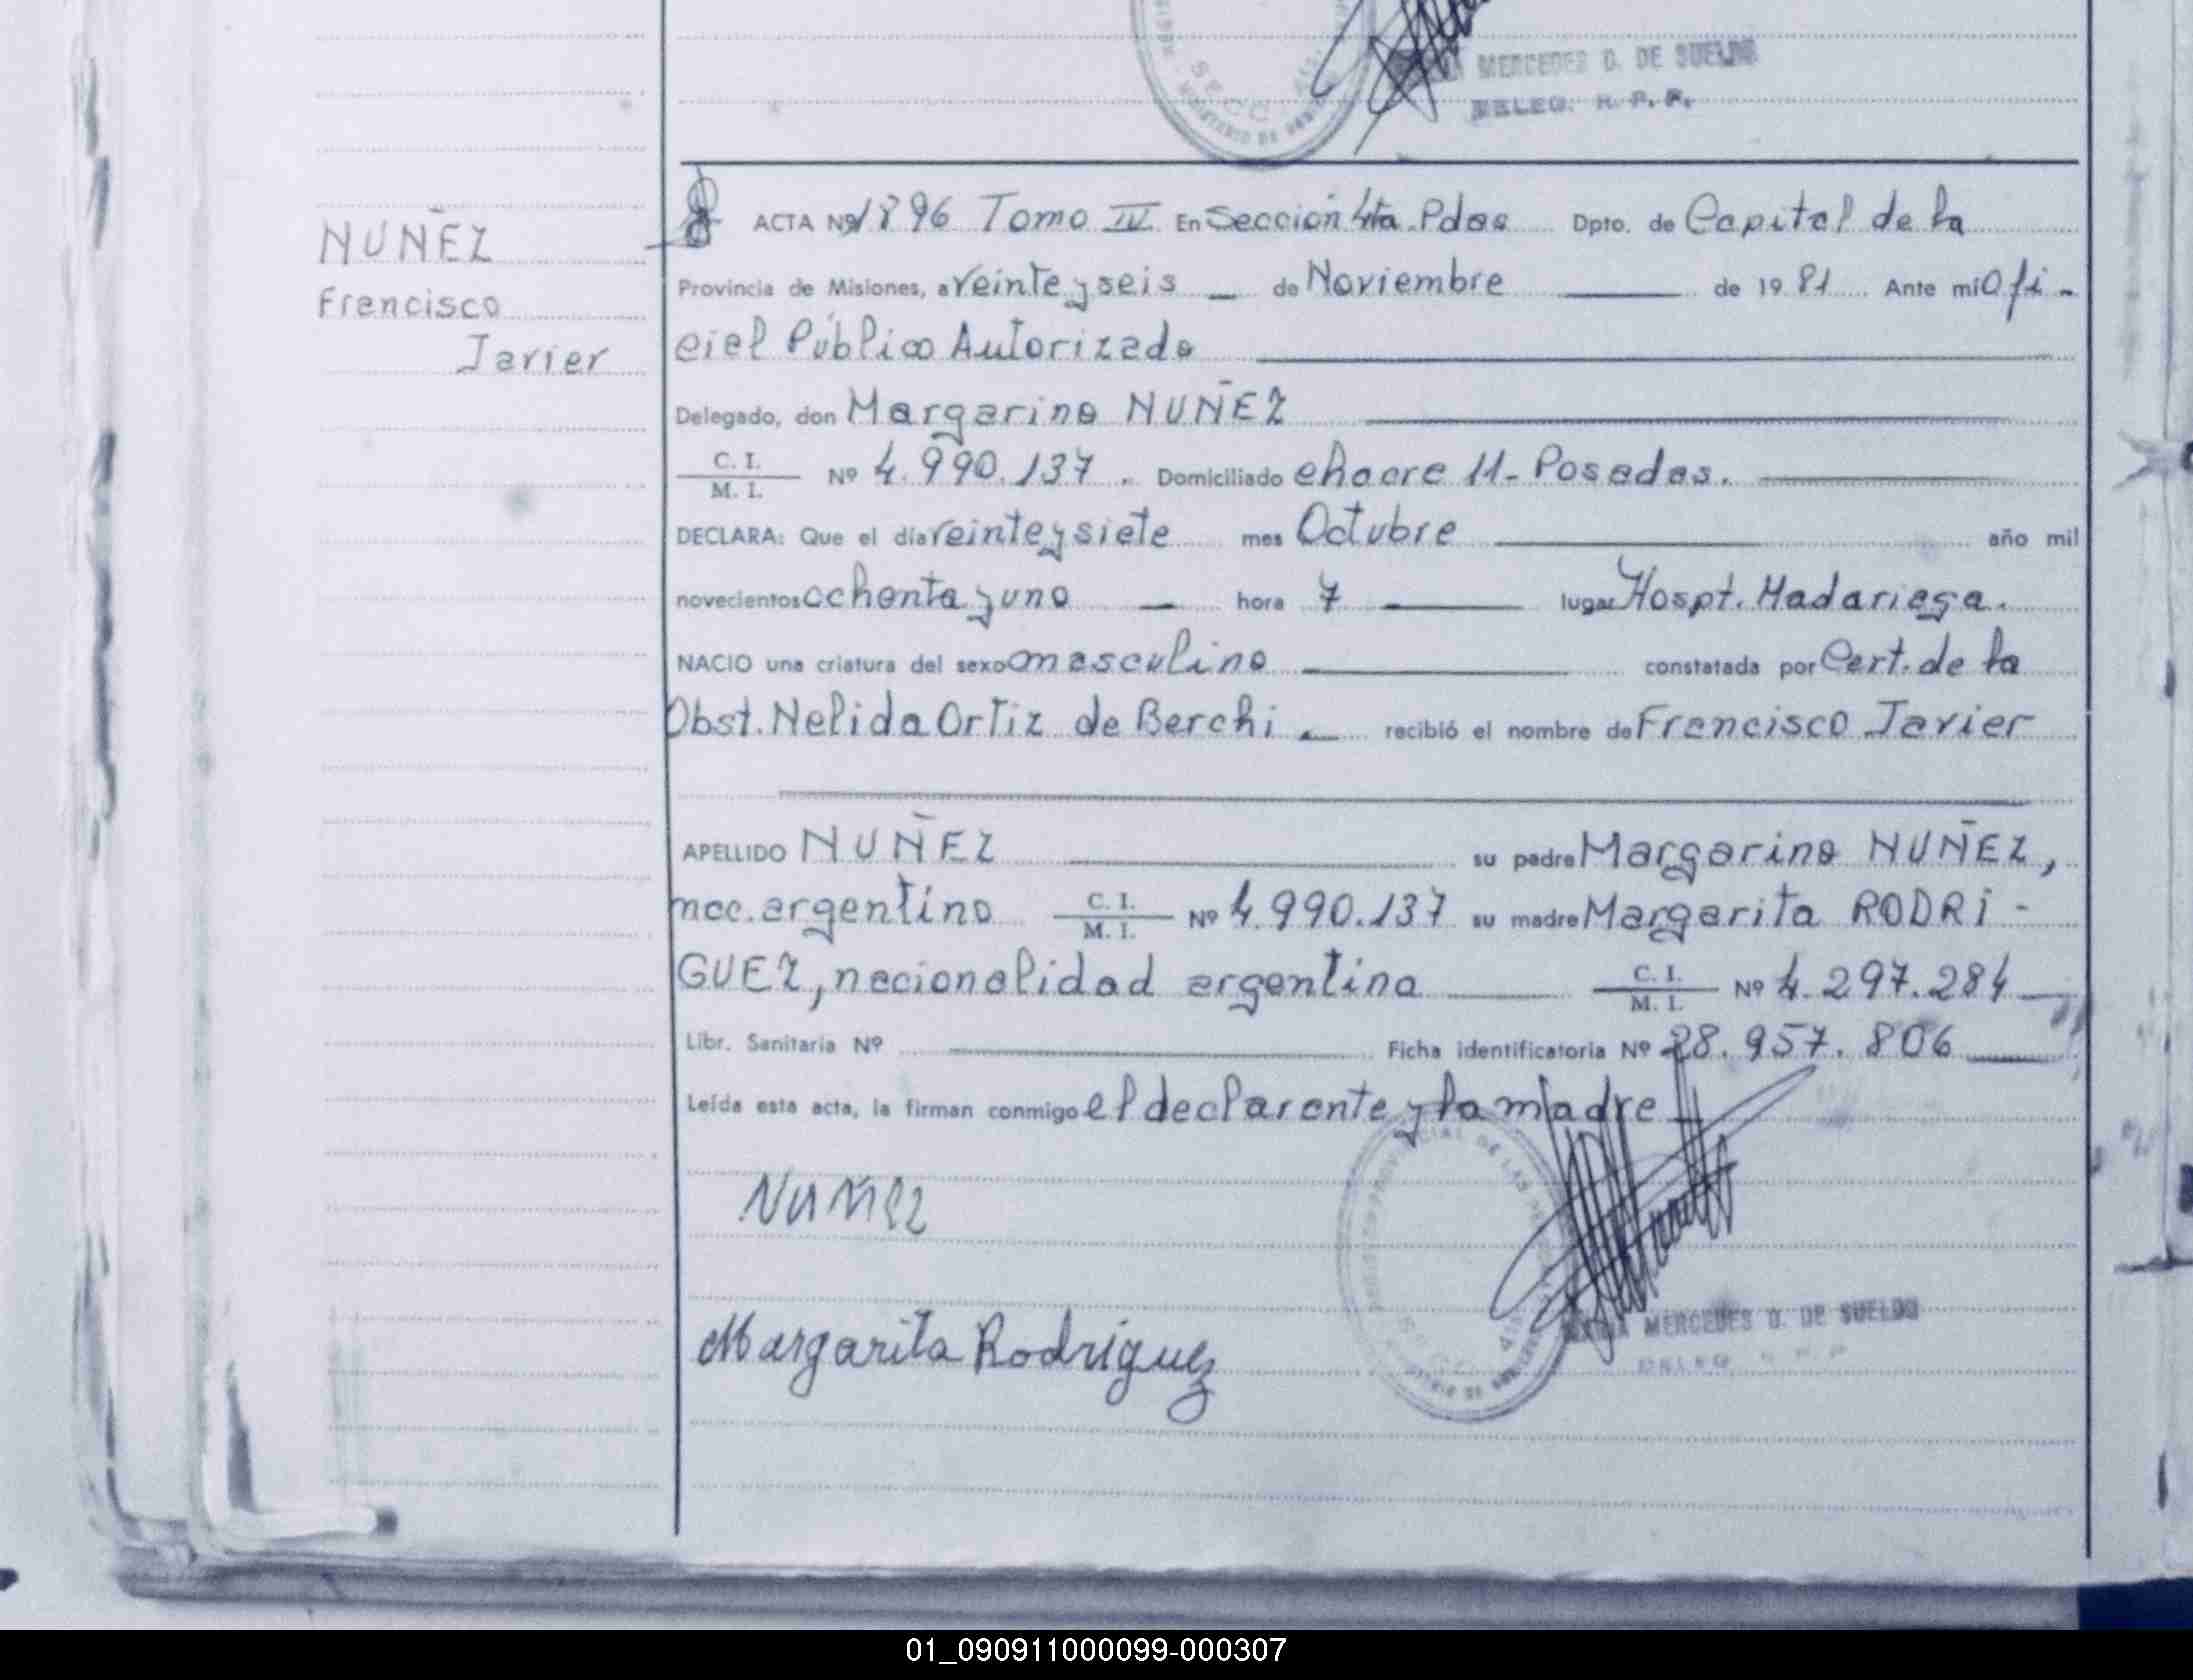 MERCEDES D. DE SUELDO
DELEG. R. P. P.
NUÑEZ
Francisco
Javier
ACTA Nº 1896 Tomo IV En Sección 4ta. Pdas Dpto. de Capital de la
Provincia de Misiones, a veinte y seis de Noviembre de 1981 Ante mi Ofi-
cial Público Autorizado
Delegado, don Margarino NUÑEZ
C. I.
M. I. Nº 4.990.137. Domiciliado chacra 11 - Posadas.
DECLARA: Que el día veinte y siete mes Octubre año mil
novecientos ochenta y uno hora 7 lugar Hospt. Madariaga.
NACIO una criatura del sexo masculino constatada por Cert. de la
Obst. Nelida Ortiz de Berchi recibió el nombre de Francisco Javier
APELLIDO NUÑEZ su padre Margarino NUÑEZ,
nac. argentino C. I.
M. I. Nº 4.990.137 su madre Margarita RODRI-
GUEZ, nacionalidad argentina C. I.
M. I. Nº 4.297.284
Libr. Sanitaria Nº Ficha identificatoria Nº 28.957.806
Leída esta acta, la firman conmigo el declarante y la madre
Nuñez
Margarita Rodriguez
MERCEDES D. DE SUELDO
DELEG. R. P. P.
01_090911000099-000307